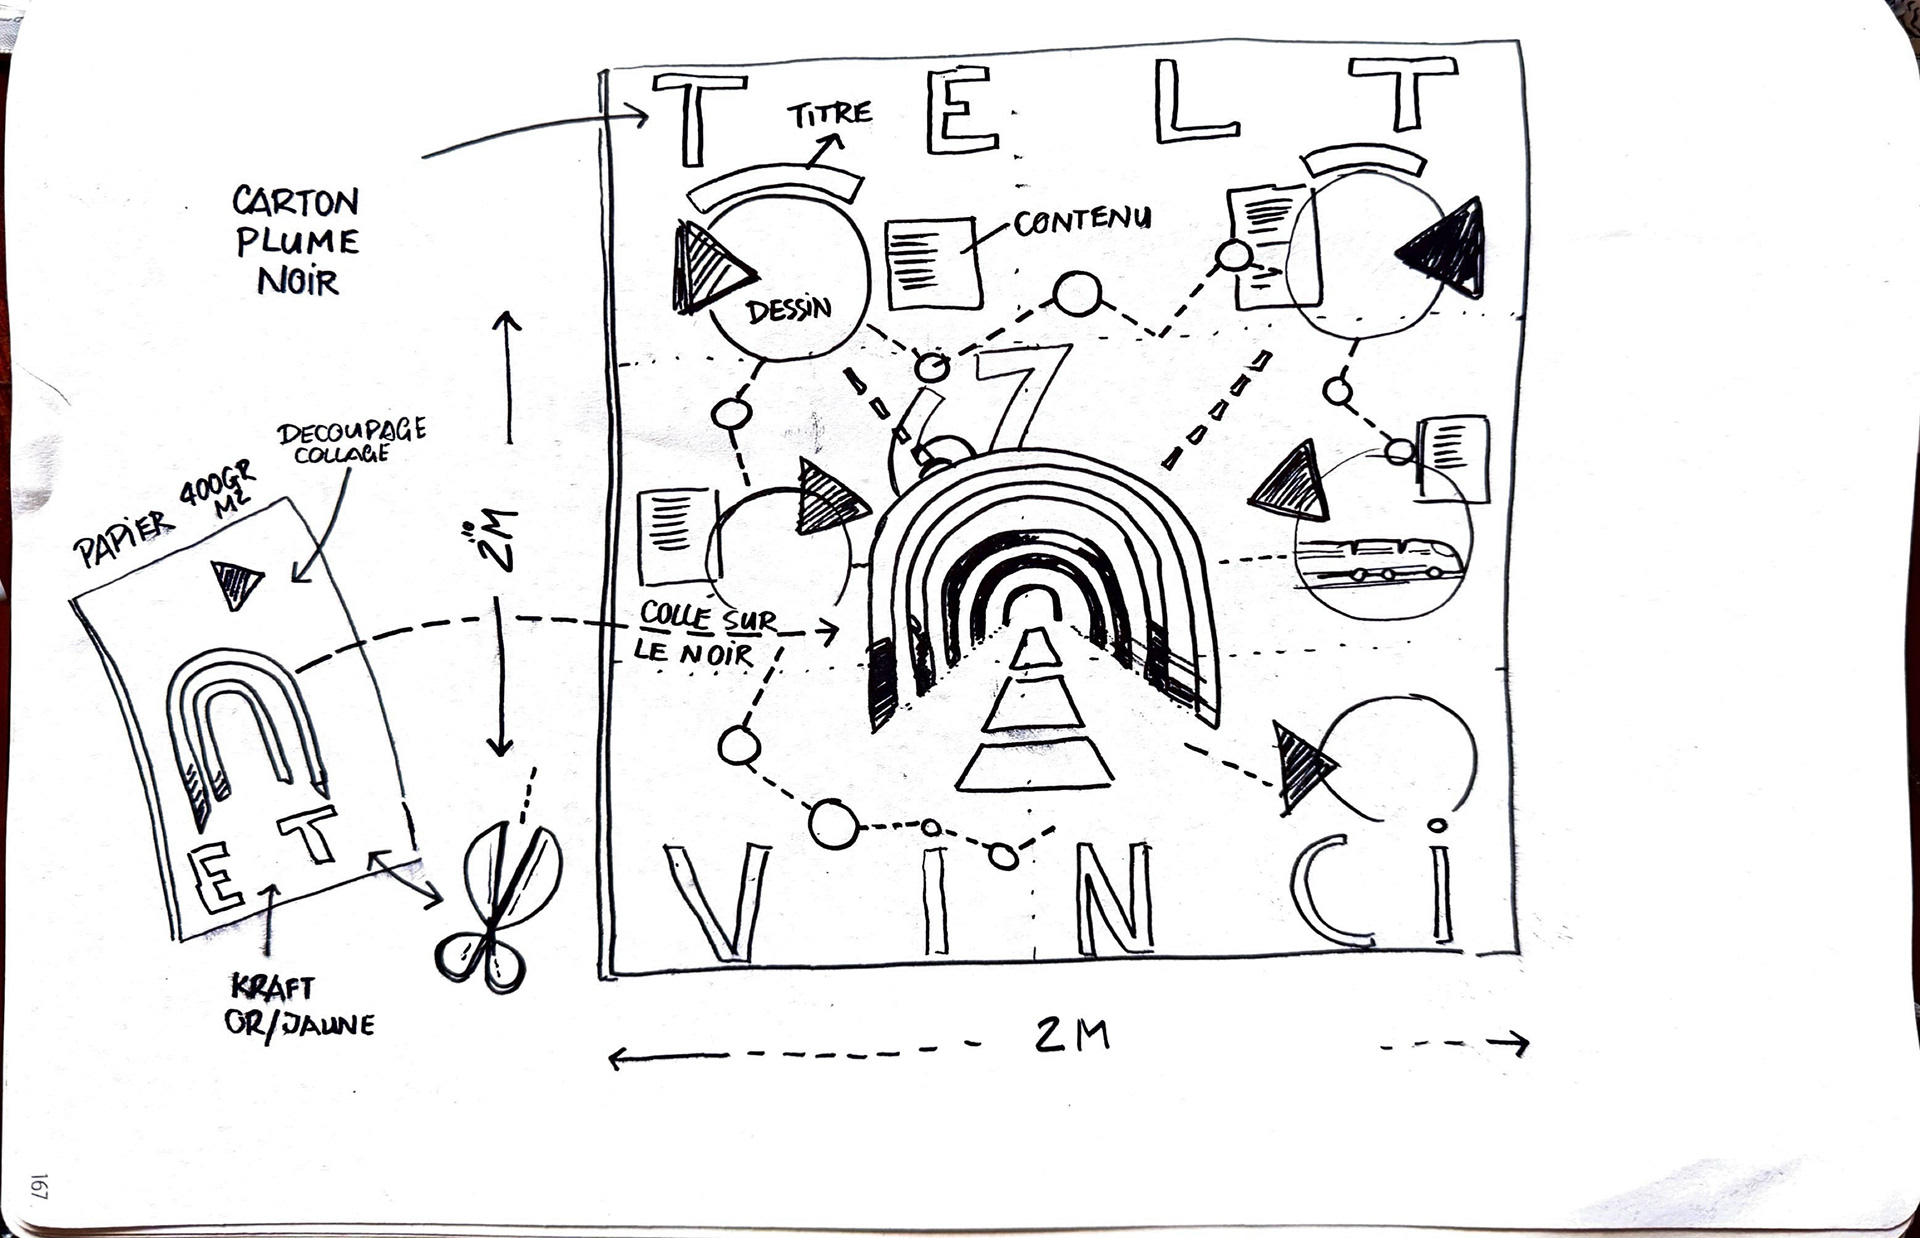 T E L T
TITRE
CARTON
PLUME
NOIR
CONTENU
DESSIN
67
DECOUPAGE
COLLAGE
PAPIER 400GR
M2
2M
COLLE SUR
LE NOIR
E T
V I N C i
KRAFT
OR/JAUNE
2M
167